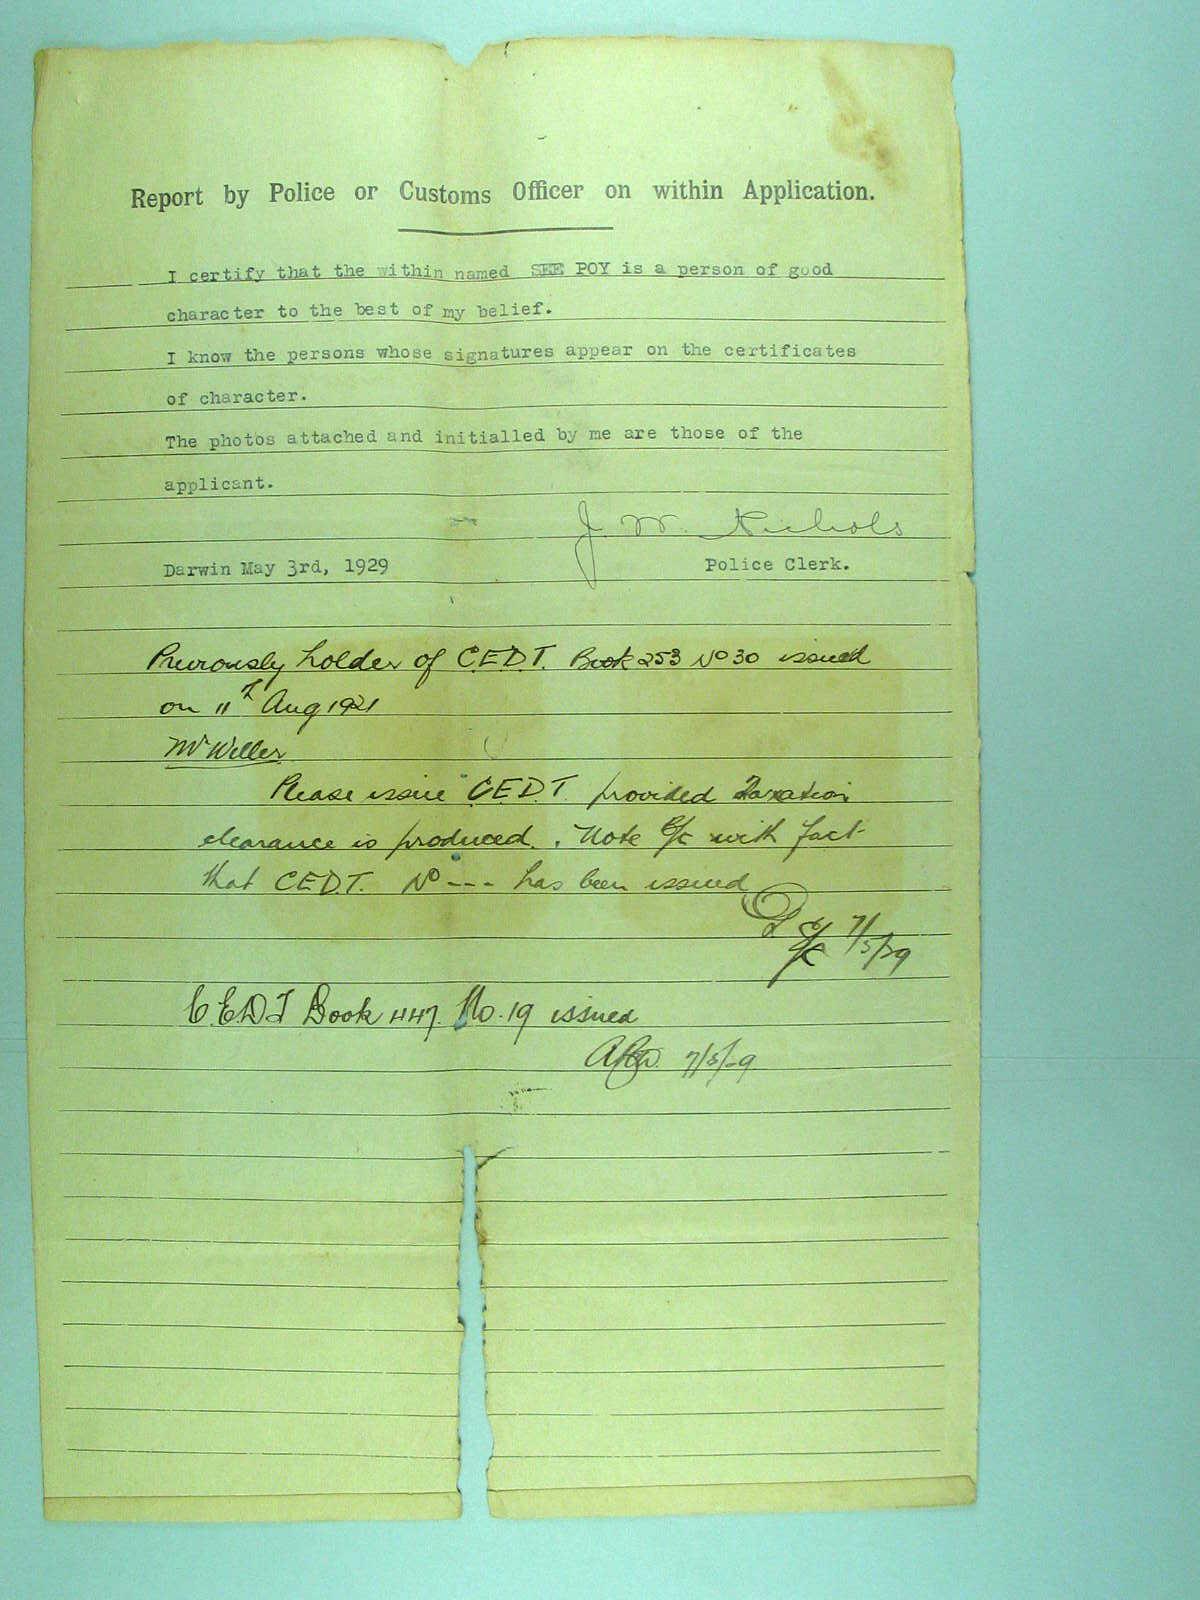 Report by Police or Customs Officer on within Application.
I certify that the within named SEE POY is a person of good
character to the best of my belief.
I know the persons whose signatures appear on the certificates
of character.
The photos attached and initialled by me are those of the
applicant.
J. W. Nichols
Darwin May 3rd, 1929 Police Clerk.
Previously holder of C.E.D.T. Book 253 No 30 issued
on 11th Aug 1921
Mr Weller
Please issue C.E.D.T. provided Taxation
clearance is produced. Note with fact
that C.E.D.T. No --- has been issued
7/5/29
C.E.D.T Book 447. No. 19 issued
7/5/29